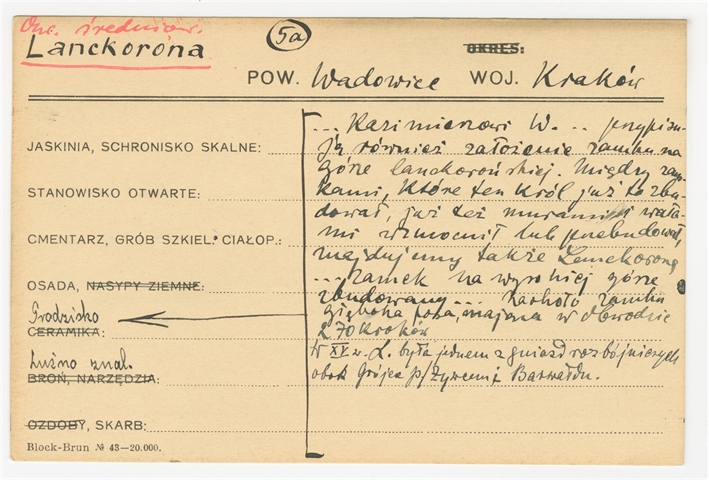 Okr. średniow.
Lanckorona
5a
OKRES:
POW. Wadowice WOJ. Kraków
JASKINIA, SCHRONISKO SKALNE:
STANOWISKO OTWARTE:
CMENTARZ, GRÓB SZKIEL. CIAŁOP.:
OSADA, NASYPY ZIEMNE:
Grodzisko
CERAMIKA:
Luźno znal.
BROŃ, NARZĘDZIA:
OZDOBY, SKARB:
Block-Brun № 43—20.000.
... Kazimierzowi W. .. przypisu-
ją również założenie zamku na
górze lanckorońskiej. Między zam-
kami, które ten król już to zbu-
dował, już też murami i wała-
mi wzmocnił lub przebudował,
znajdujemy także Lanckoronę
... zamek na wysokiej górze
zbudowany ... naokoło zamku
głęboka fosa, mająca w obwodzie
270 kroków
W XV w. L. była jednem z gniazd rozbójniczych
obok Grójca p/Żywcem i Barwałdu.